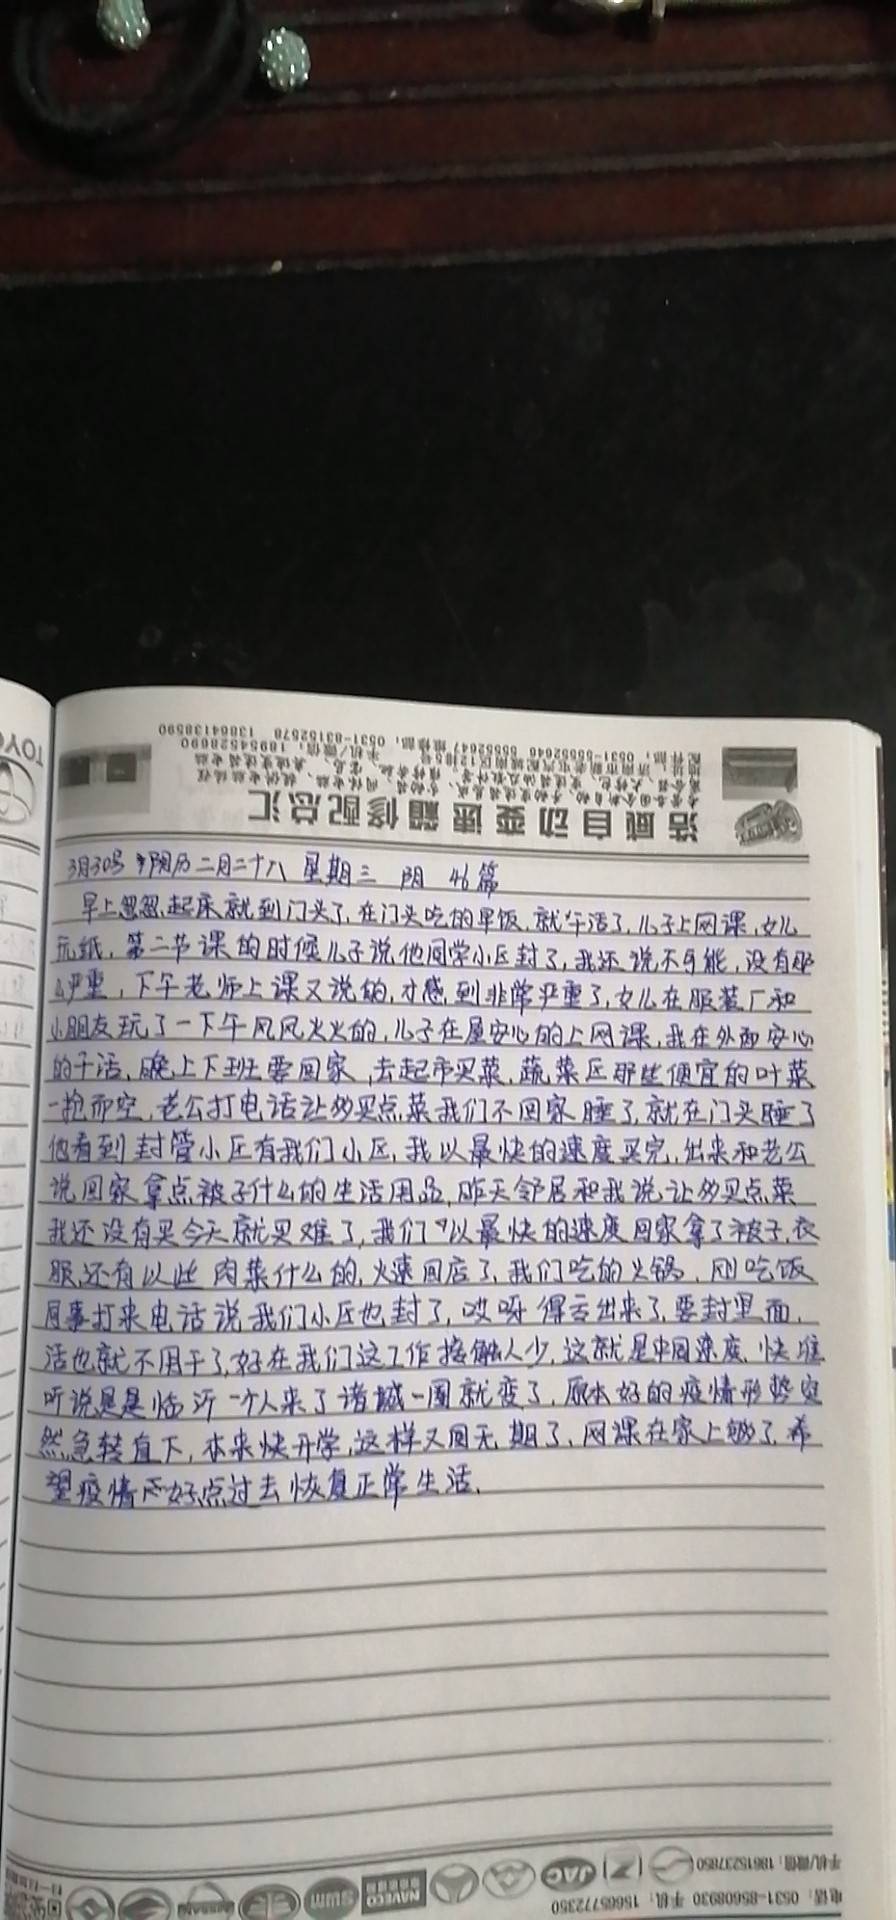 浩威自动变速箱修配总汇
3月30号 阴历二月二十八 星期三 阴 46篇
早上忽忽起床就到门头了,在门头吃的早饭,就午活了,儿子上网课,女儿
玩纸,第二节课的时候儿子说他同学小区封了,我还说不可能,没有那
么严重,下午老师上课又说的,才感到非常严重了,女儿在服装厂和
小朋友玩了一下午风风火火的,儿子在屋安心的上网课,我在外面安心
的干活,晚上下班要回家,去起市买菜,蔬菜区那些便宜的叶菜
一抢而空,老公打电话让多买点菜我们不回家睡了,就在门头睡了
他看到封管小区有我们小区,我以最快的速度买完,出来和老公
说回家拿点被子什么的生活用品,昨天邻居和我说让多买点菜
我还没有买今天就买难了,我们以最快的速度回家拿了被子,衣
服,还有以些肉菜什么的,火速回店了,我们吃的火锅,刚吃饭
同事打来电话说我们小区也封了,哎呀得亏出来了,要封里面,
活也就不用干了,好在我们这工作接触人少,这就是中国速度,快准
听说是是临沂一个人来了诸城一圈就变了,原本好的疫情形势突
然急转直下,本来快开学,这样又回无期了,网课在家上够了,希
望疫情好点过去恢复正常生活.
电话:0531-85608930 手机:15665772350
手机/微信:18615237850